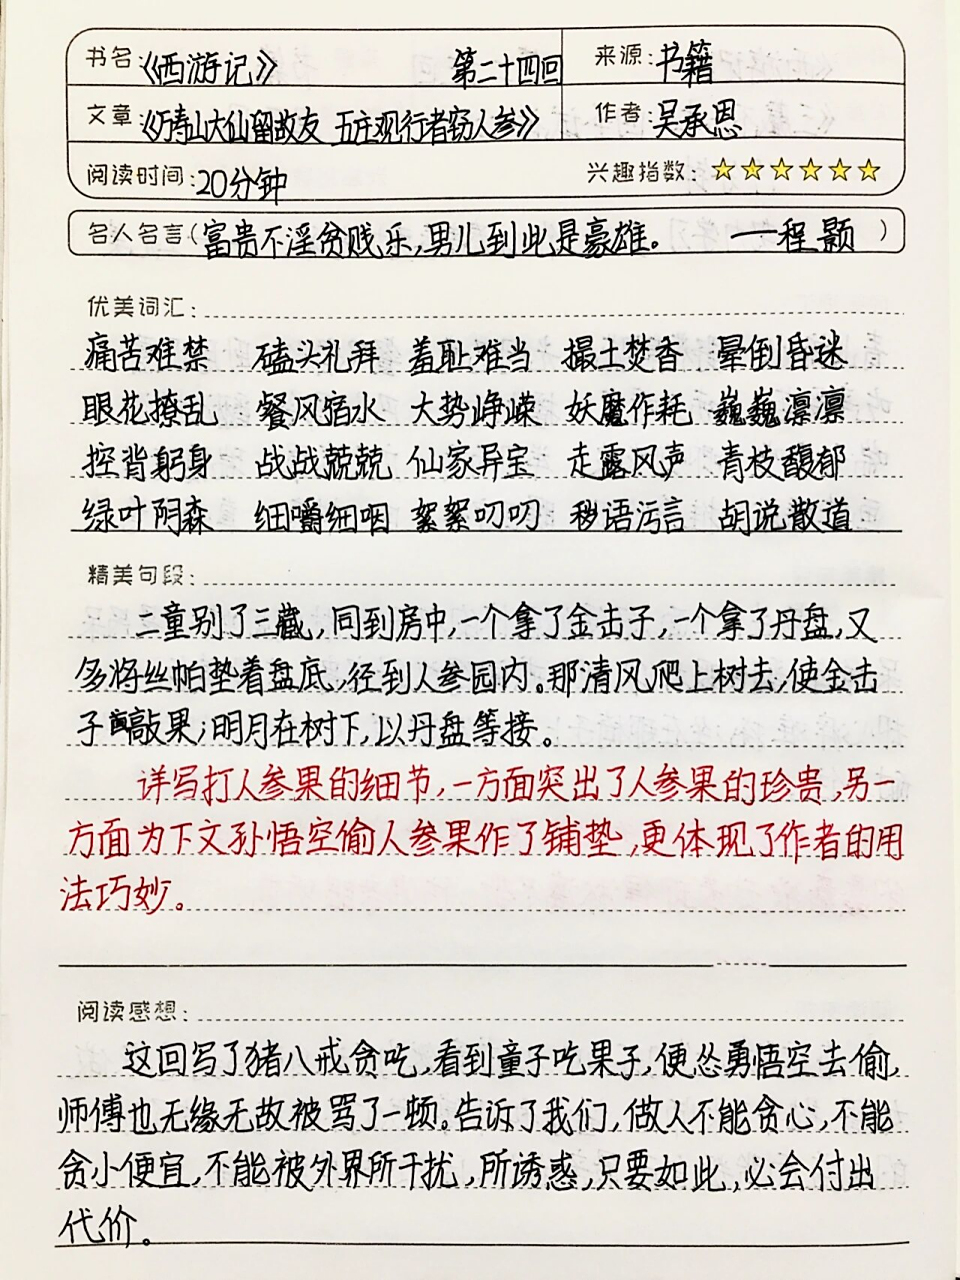 书名:《西游记》 第二十四回 来源:书籍
文章:《万寿山大仙留故友 五庄观行者窃人参》 作者:吴承恩
阅读时间:20分钟 兴趣指数:☆☆☆☆☆☆
名人名言(富贵不淫贫贱乐,男儿到此是豪雄。 ——程颢)
优美词汇:
痛苦难禁 磕头礼拜 羞耻难当 撮土焚香 晕倒昏迷
眼花撩乱 餐风宿水 大势峥嵘 妖魔作耗 巍巍凛凛
控背躬身 战战兢兢 仙家异宝 走露风声 青枝馥郁
绿叶阴森 细嚼细咽 絮絮叨叨 秽语污言 胡说散道
精美句段:
二童别了三藏,同到房中,一个拿了金击子,一个拿了丹盘,又
多将丝帕垫着盘底,径到人参园内。那清风爬上树去,使金击
子敲果;明月在树下,以丹盘等接。
详写打人参果的细节,一方面突出了人参果的珍贵,另一
方面为下文孙悟空偷人参果作了铺垫,更体现了作者的用
法巧妙。
阅读感想:
这回写了猪八戒贪吃,看到童子吃果子,便怂勇悟空去偷,
师傅也无缘无故被骂了一顿。告诉了我们,做人不能贪心,不能
贪小便宜,不能被外界所干扰,所诱惑,只要如此,必会付出
代价。